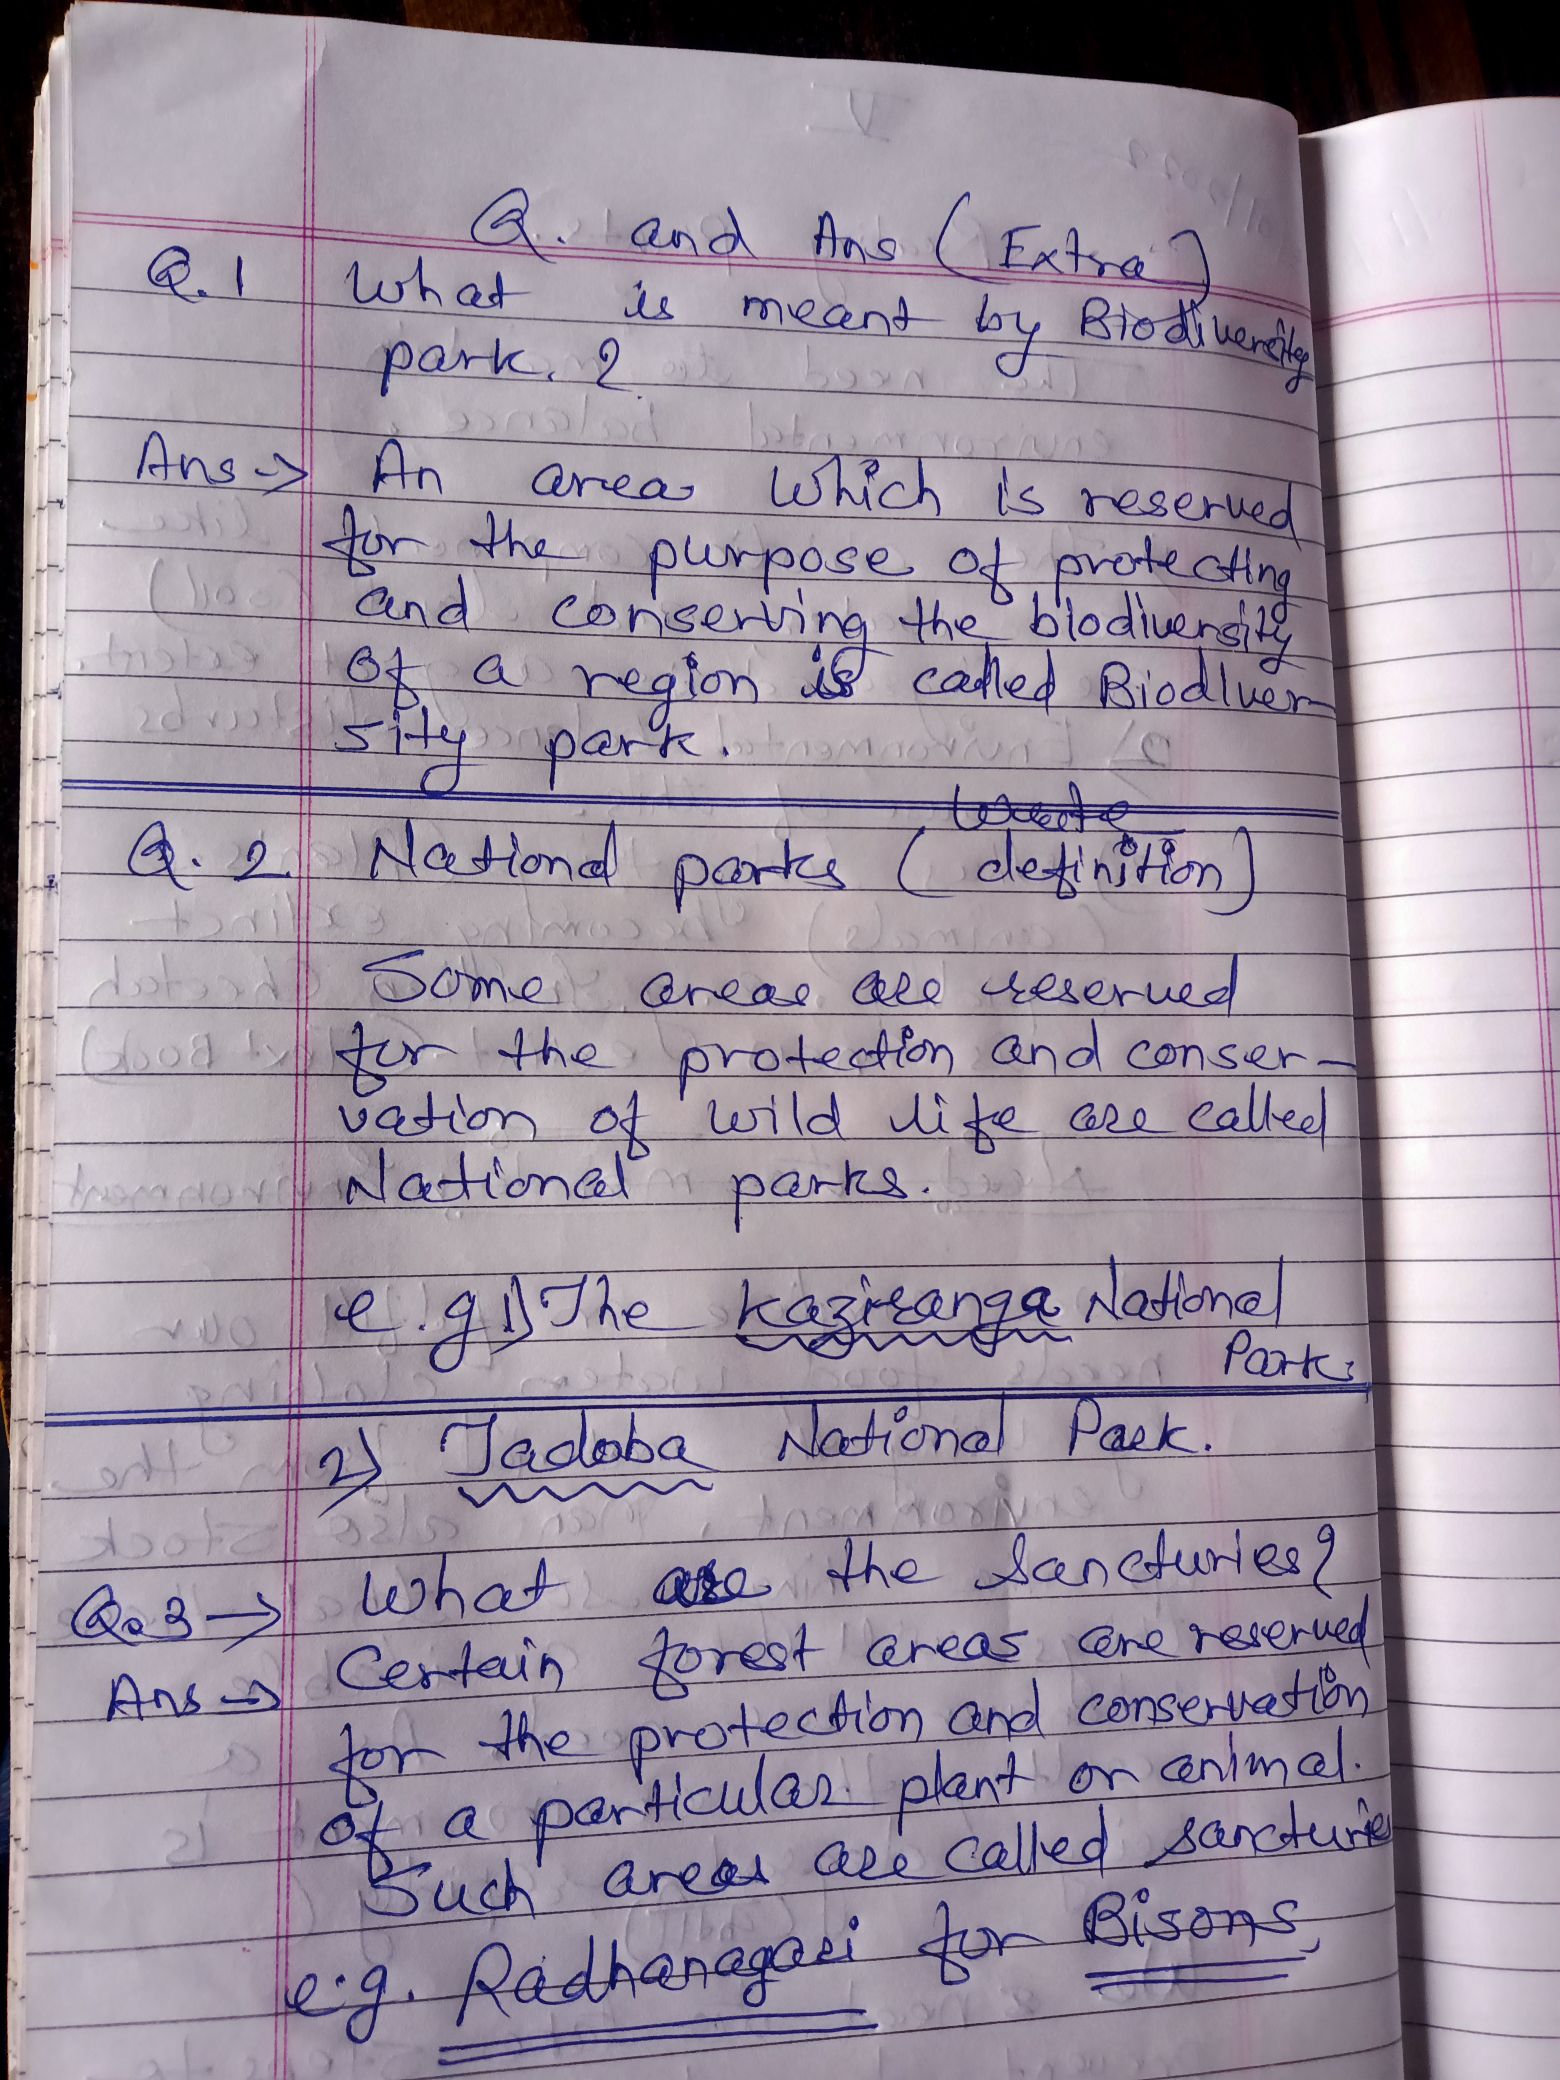 Q. and Ans (Extra)
Q.1 What is meant by Biodiversity
park. ?
Ans → An area which is reserved
for the purpose of protecting
and conserving the biodiversity
of a region is called Biodiver-
sity park.
Q. 2. National parks (definition)
Some areas are reserved
for the protection and conser-
vation of wild life are called
National parks.
e.g 1) The Kaziranga National
Park.
2) Tadoba National Park.
Q.3 → What are the Sancturies?
Ans → Certain forest areas are reserved
for the protection and conservation
of a particular plant or animal.
Such areas are called sancturies
e.g. Radhanagari for Bisons,